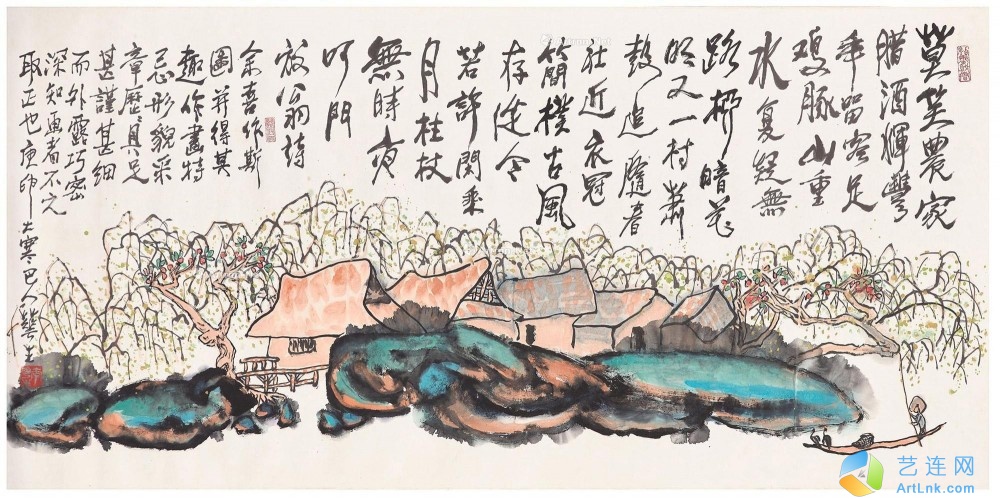 莫笑農家
腊酒渾豐
年留客足
鷄豚山重
水复疑無
路柳暗花
明又一村蕭
鼓追隨春
社近衣冠
簡樸古風
存從今
若許閑乘
月柱杖
無時夜
叩門
放翁詩
余喜作斯
圖并得其
趣作畫特
忘形貌采
章歷歷具足
甚謹甚細
而外露巧密
深知畫者不
取正也庚卯大寒巴人
艺连网
ArtLnk.com